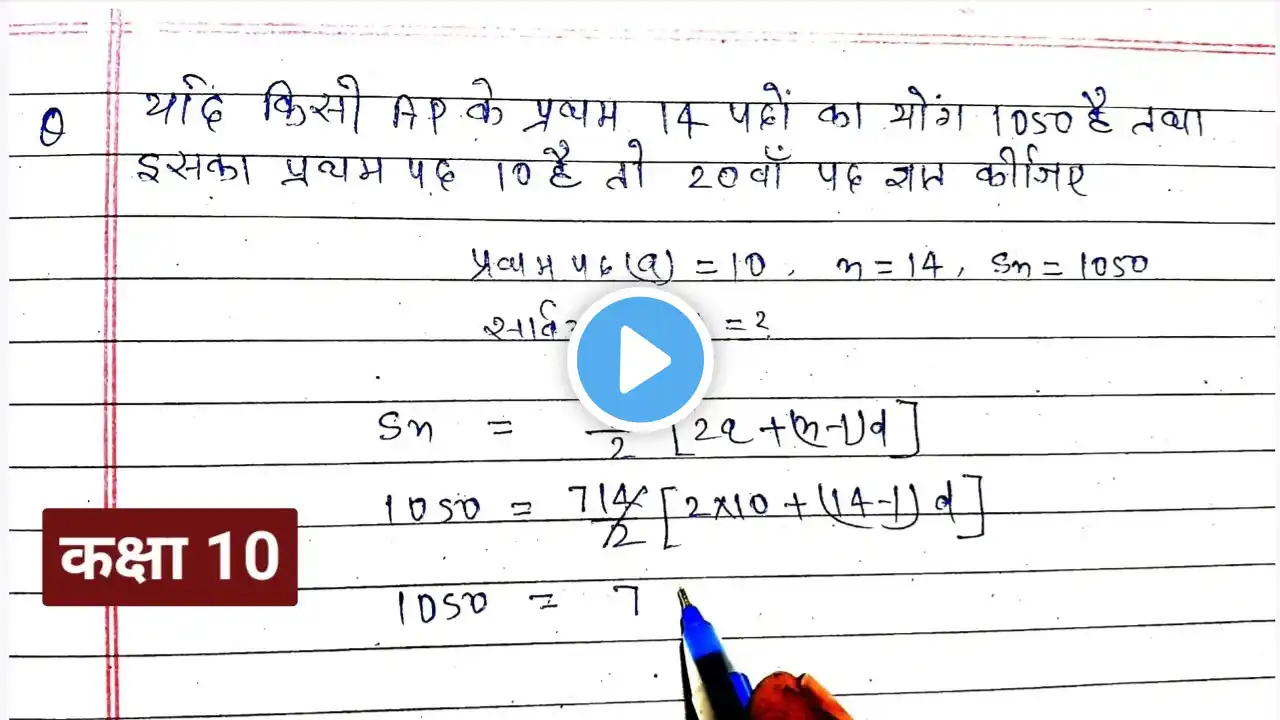 Q यदि किसी AP के प्रथम 14 पदों का योग 1050 है तथा
इसका प्रथम पद 10 है तो 20वाँ पद ज्ञात कीजिए
प्रथम पद (a) = 10, n = 14, Sn = 1050
= ?
Sn = 2 [2a + (n-1)d]
1050 = 7 14/2 [2×10 + (14-1) d]
1050 = 7
कक्षा 10